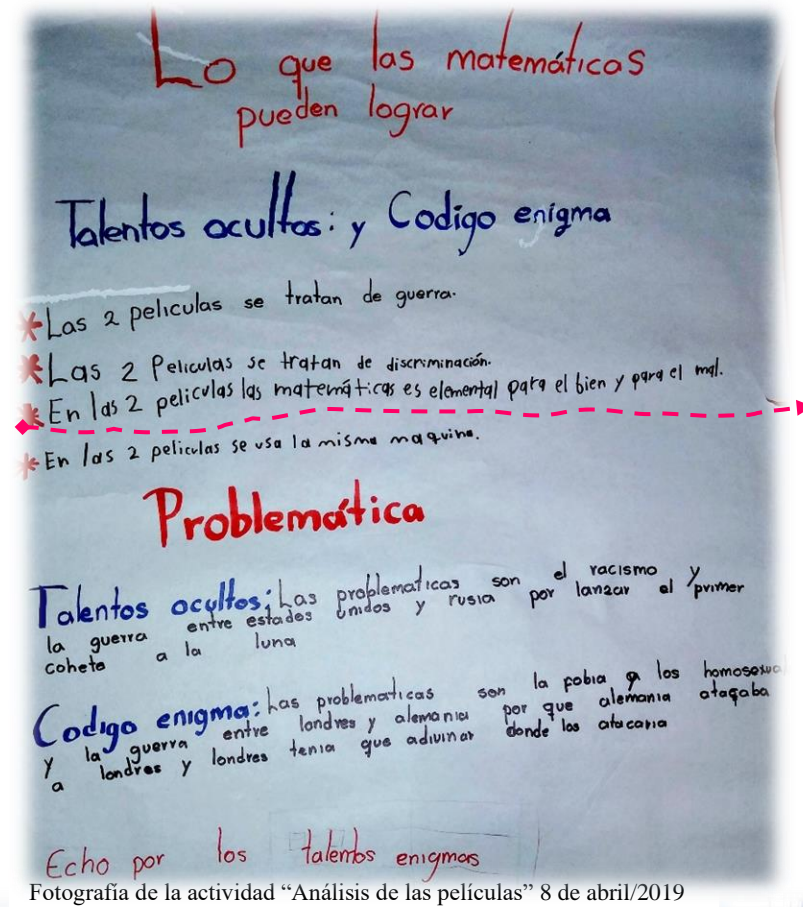 Lo que las matemáticas
pueden lograr
Talentos ocultos: y Codigo enigma
*Las 2 peliculas se tratan de guerra.
*Las 2 Peliculas se tratan de discriminación.
*En las 2 peliculas las matemáticas es elemental para el bien y para el mal.
*En las 2 peliculas se usa la misma maquina.
Problemática
Talentos ocultos: Las problematicas son el racismo y
la guerra entre estados unidos y rusia por lanzar el primer
cohete a la luna
Codigo enigma: Las problematicas son la fobia a los homosexual
y la guerra entre londres y alemania por que alemania atacaba
a londres y londres tenia que adivinar donde los atacaria
Echo por los talentos enigmas
Fotografía de la actividad “Análisis de las películas” 8 de abril/2019